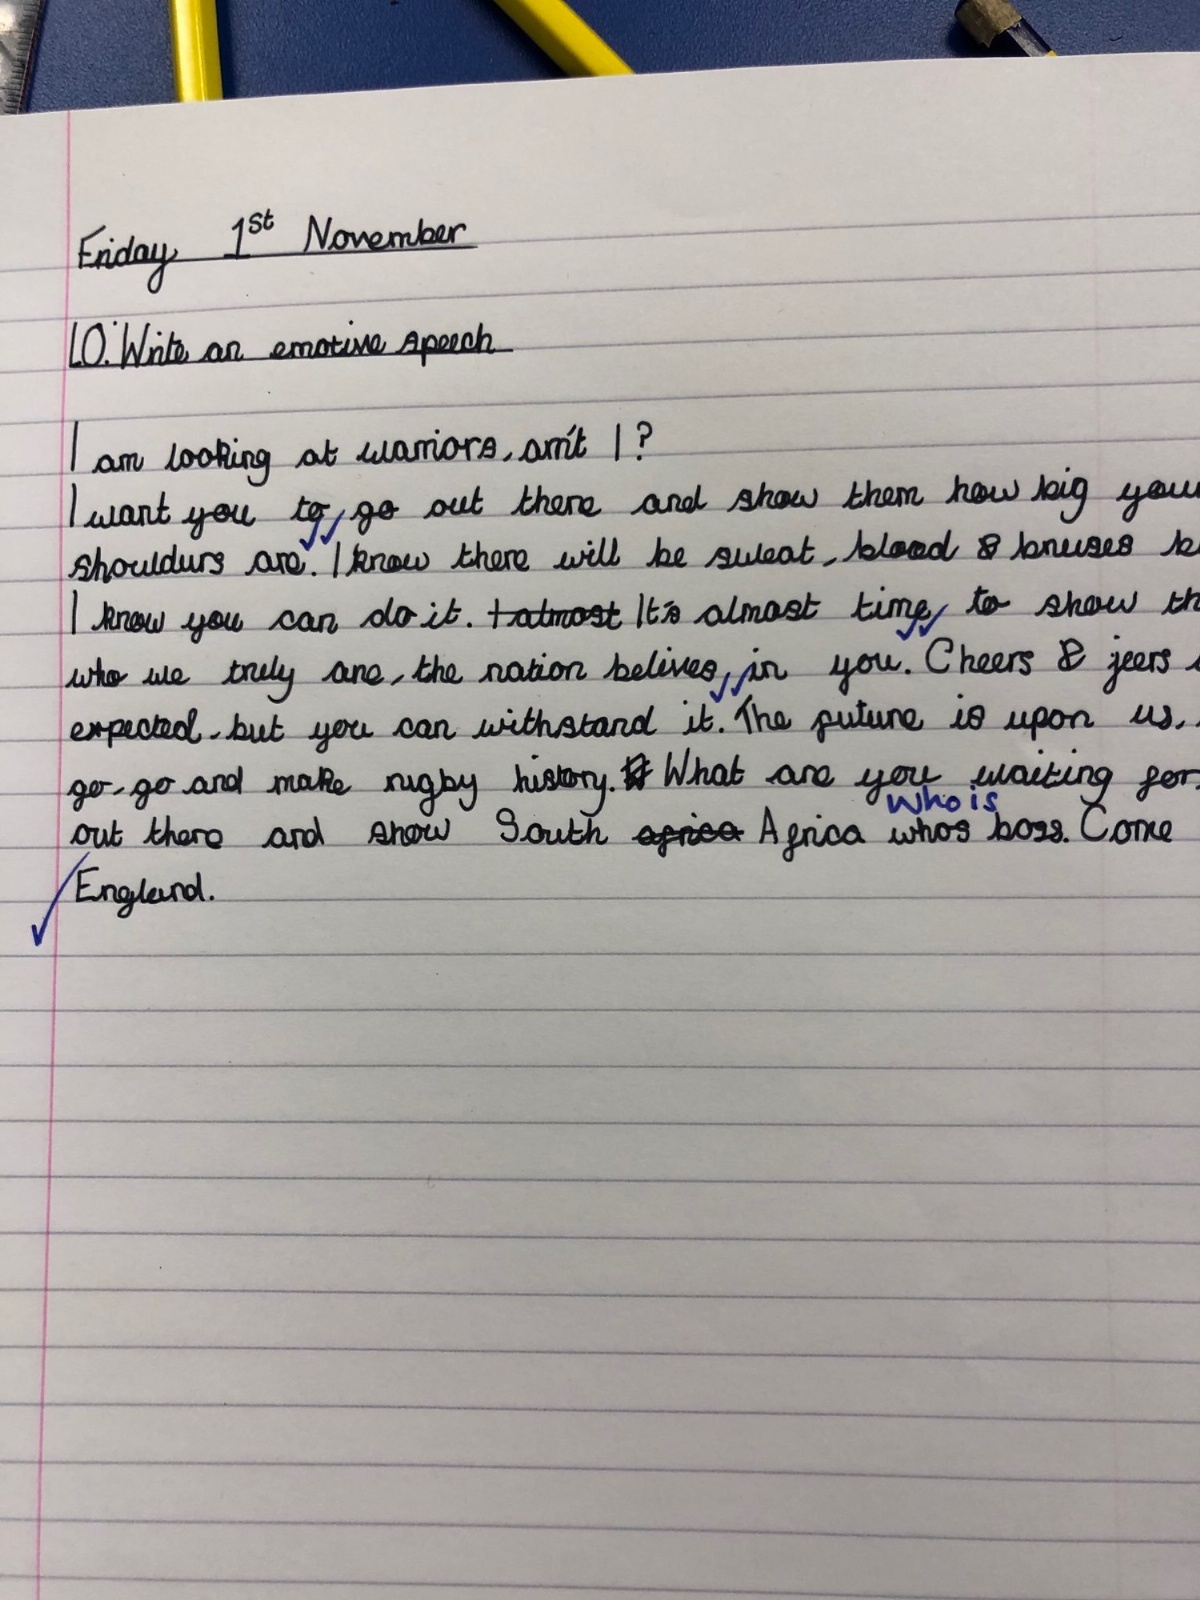 Friday 1st November
LO: Write an emotive speech
I am looking at warriors, am't I?
I want you to go out there and show them how big your
shouldurs are. I know there will be sweat, blood & bruises
I know you can do it. I almost It's almost time, to show
who we truly are, the nation belives, in you. Cheers & jeers
expected, but you can withstand it. The future is upon us,
go, go and make rugby history. What are you waiting for.
who is
out there and show South africa Africa whos boss. Come
England.